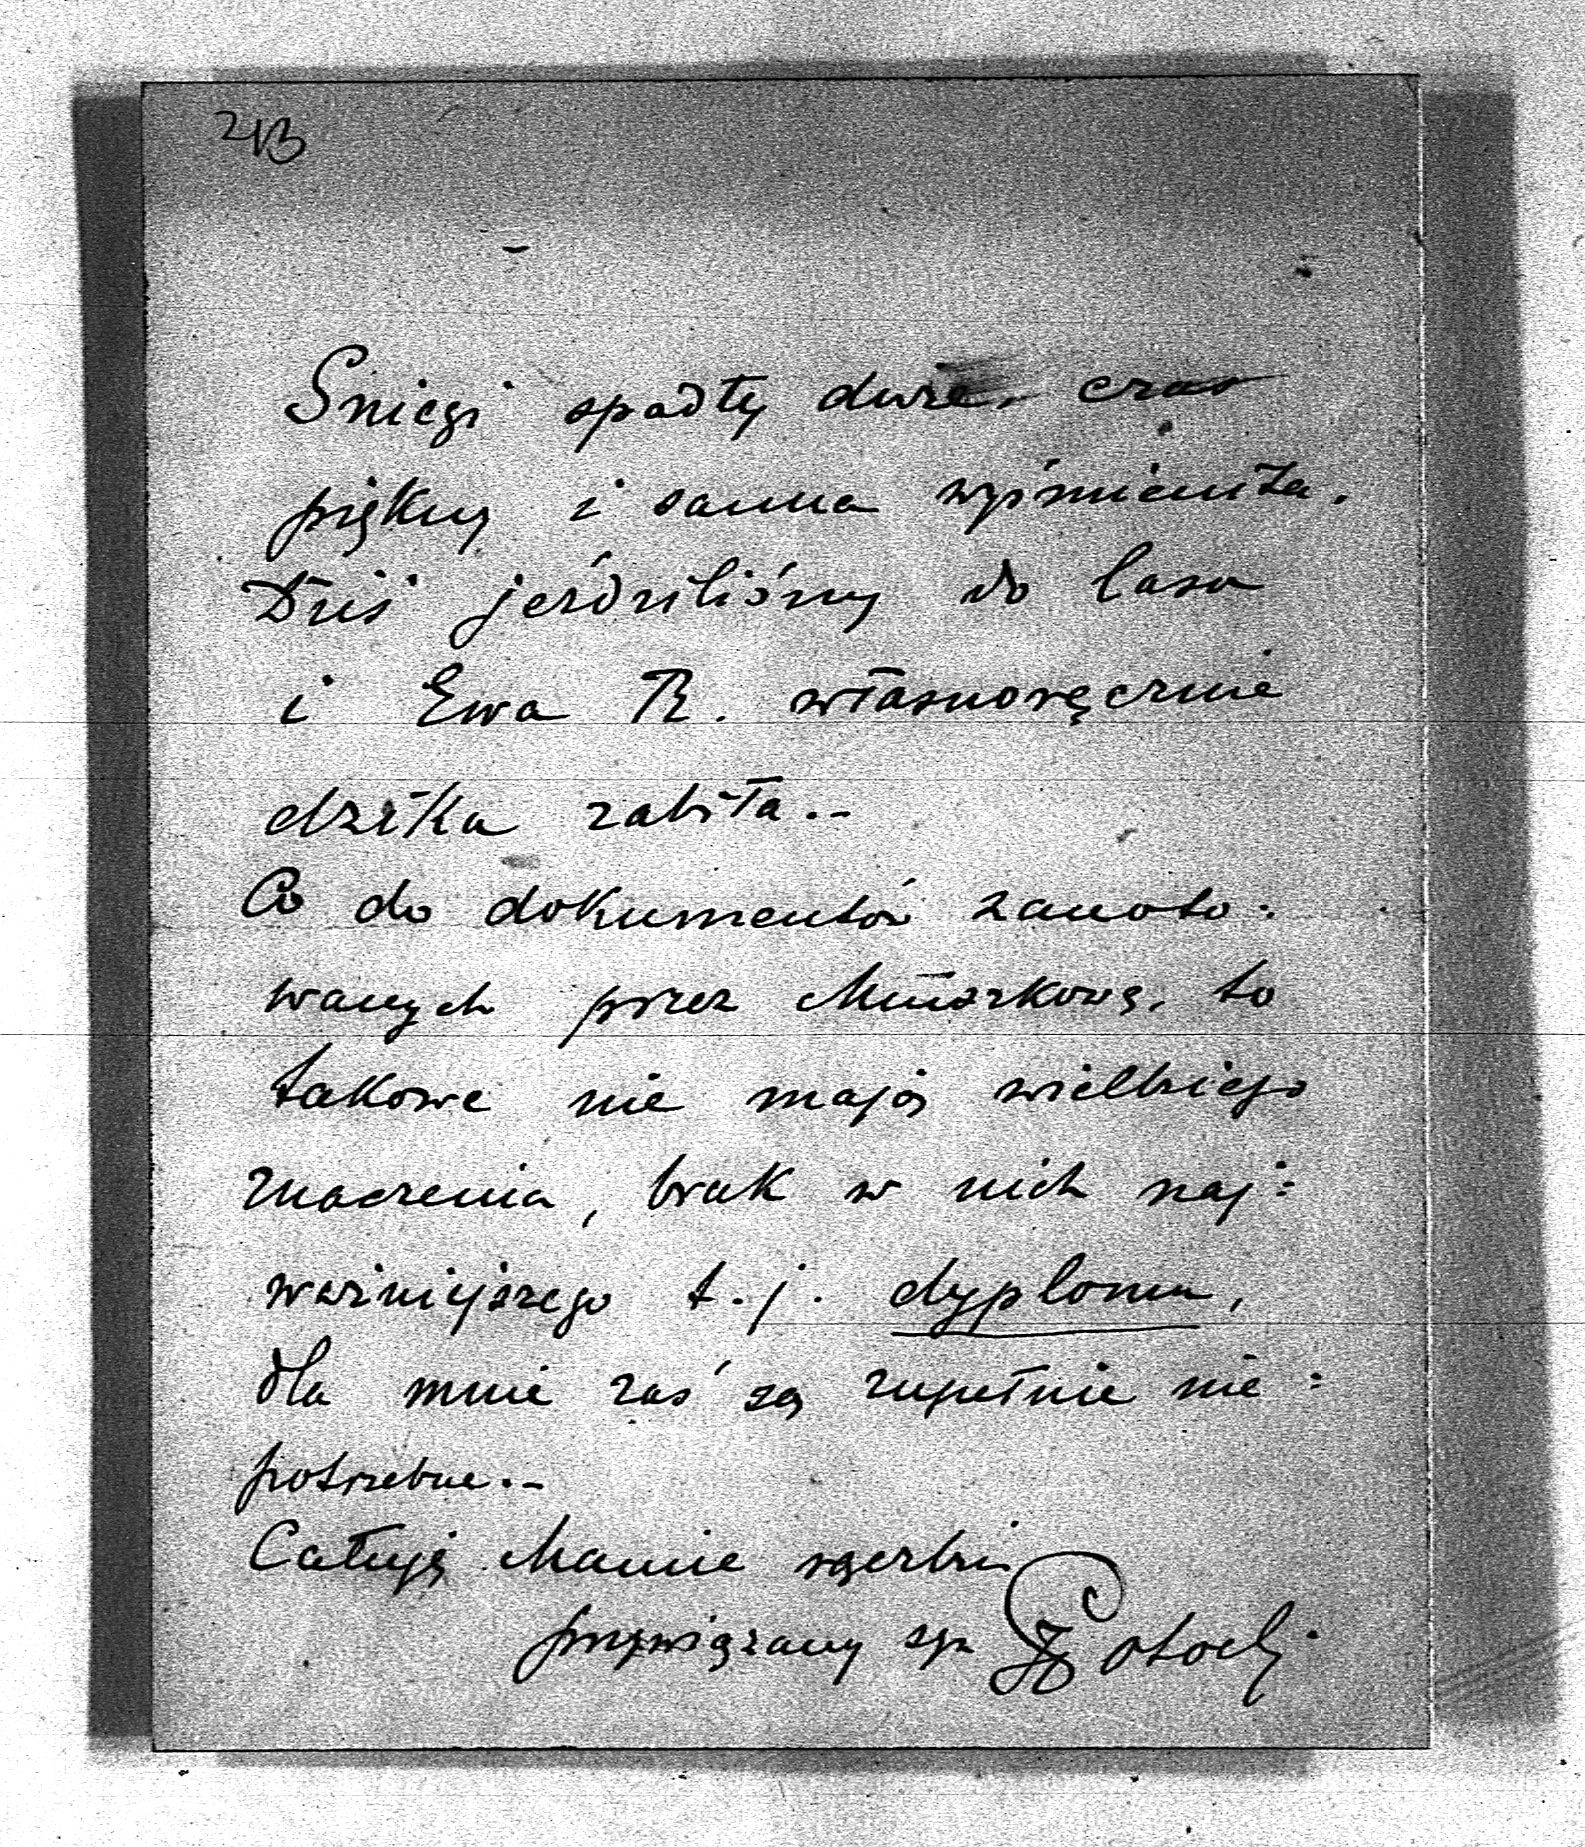 213
Śniegi spadły duże, czas
piękny i sanna wyśmienita.
Dziś jeździliśmy do lasu
i Ewa R. własnoręcznie
dzika zabiła.–
Co do dokumentów zanoto-
wanych przez to
takowe nie mają wielkiego
znaczenia, brak w nich naj=
ważniejszego t.j. dyplomu,
dla mnie zaś są zupełnie nie=
potrzebne.–
Całuję Mamie rączki
przywiązany syn Potocki